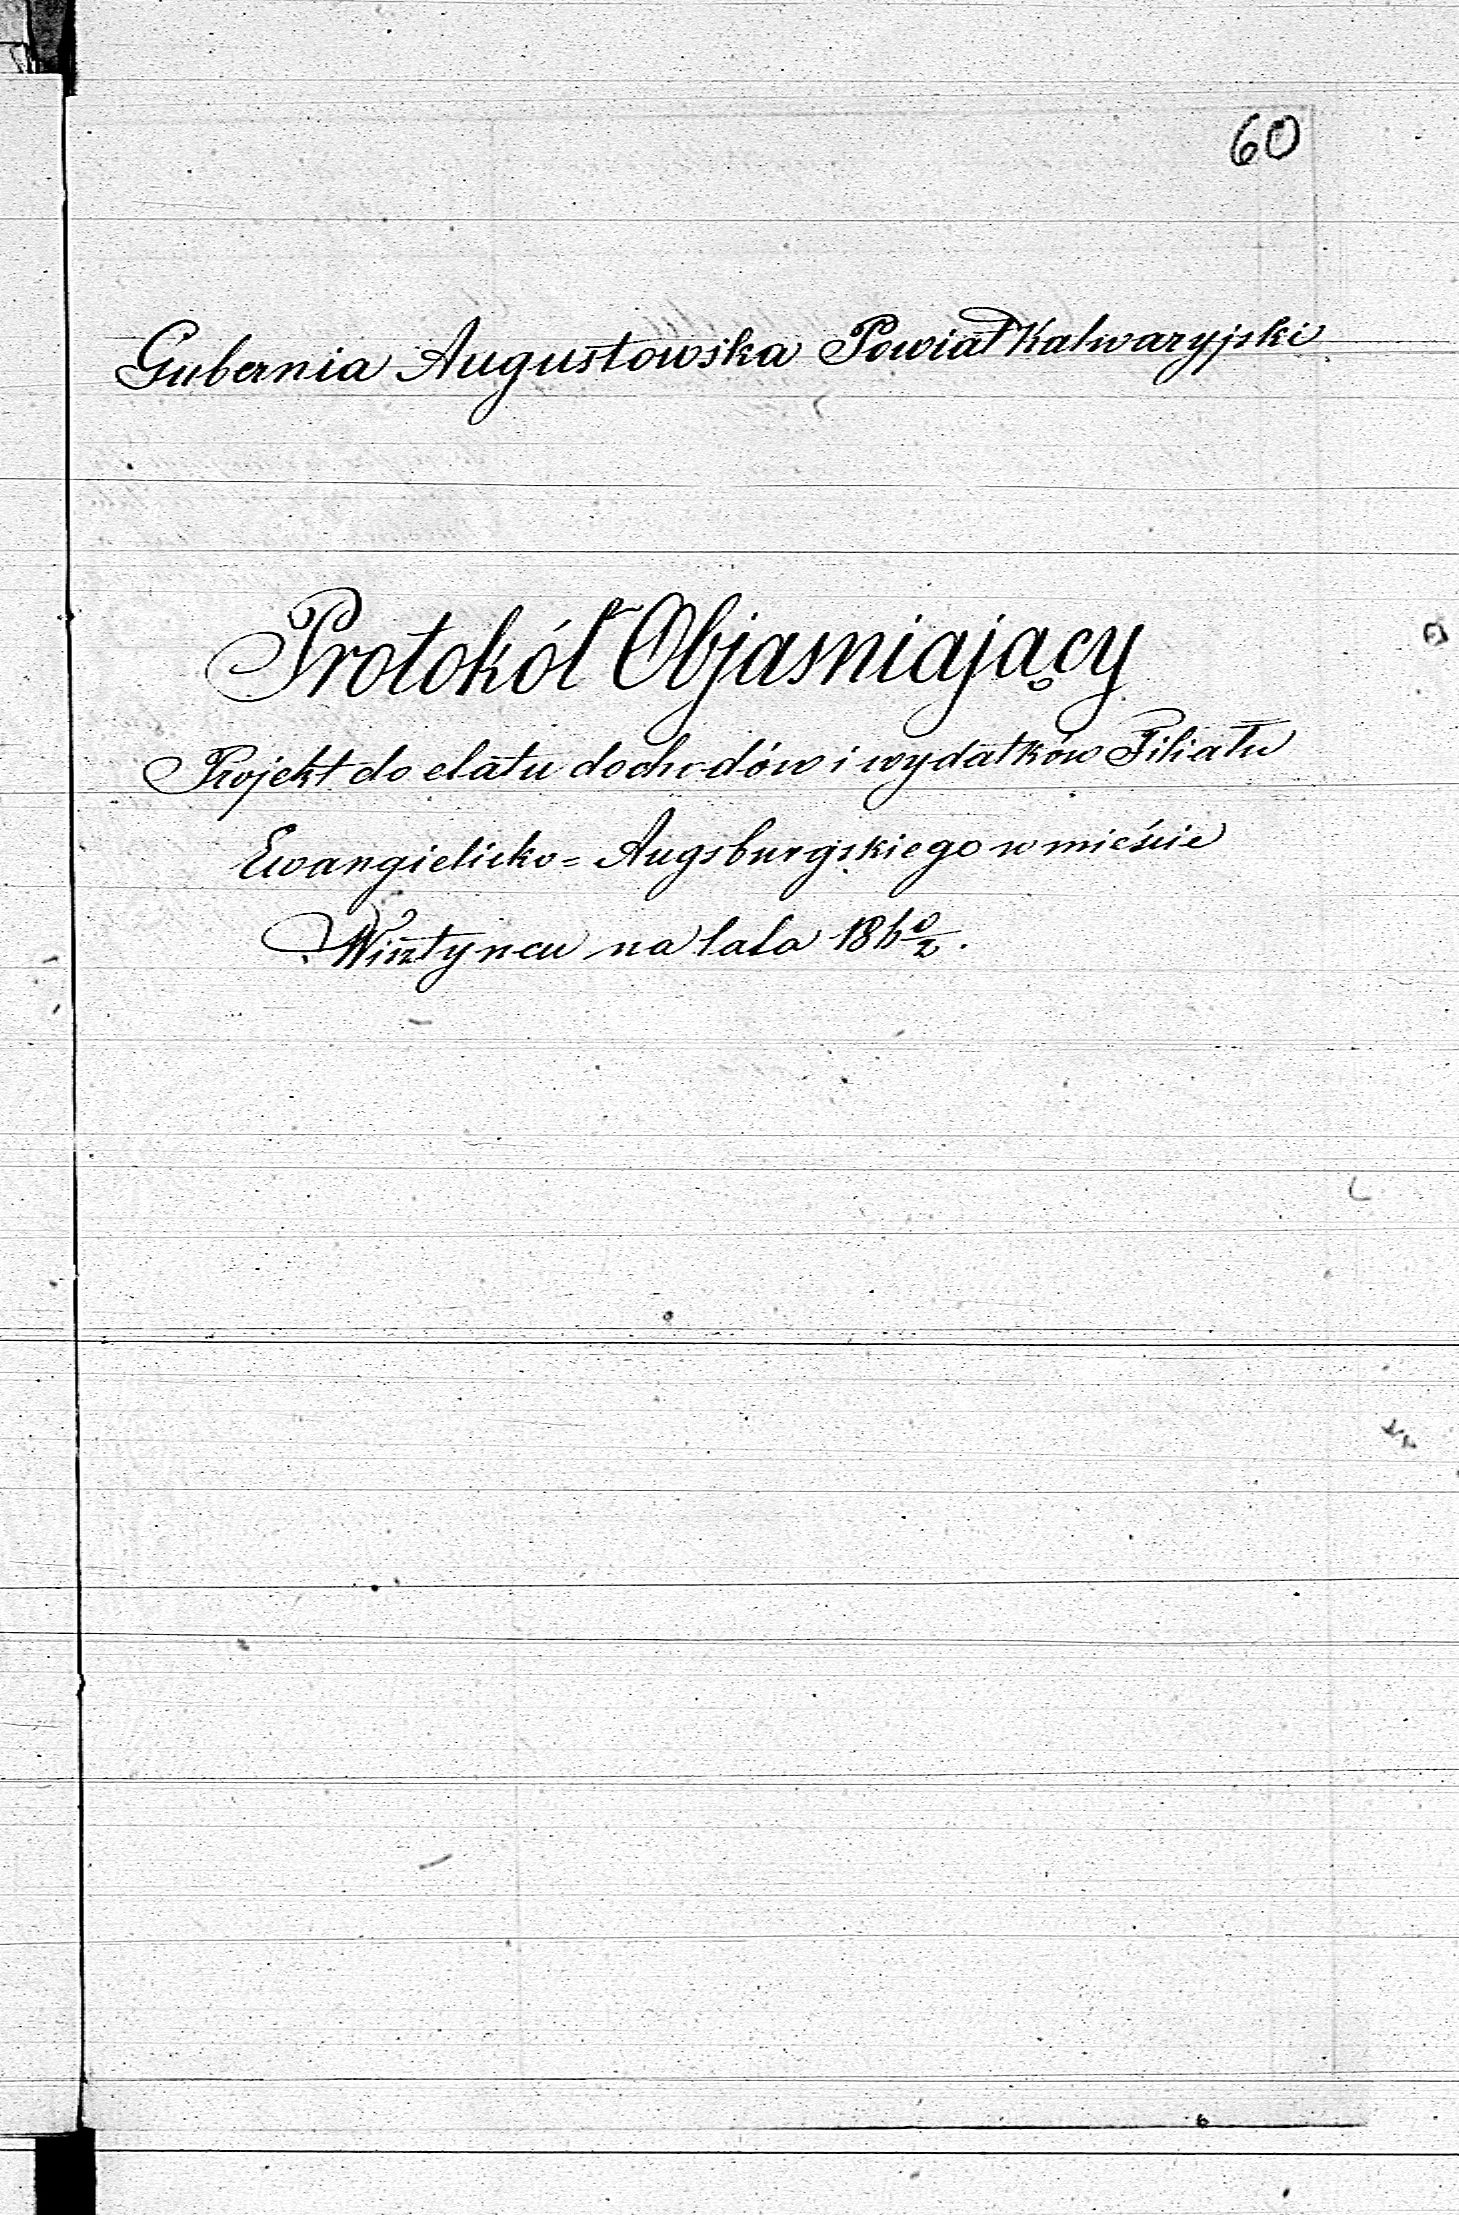 60
Gubernia Augustowska Powiat Kalwaryjski
Protokół Objasniający
Projekt do etatu dochodów i wydatków Filiału
Ewangielicko= Augsburgskiego w mieście
Wisztyncu na lata 186 0/2.